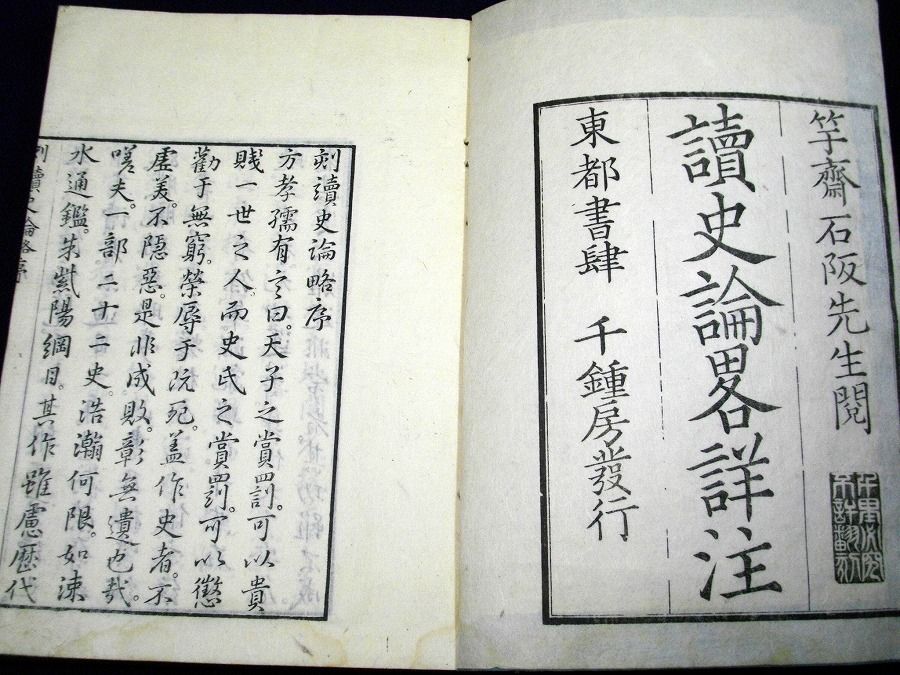 竽齋石阪先生閲
讀史論畧詳注
東都書肆　千鍾房發行
千里必究
不許翻刻
刻讀史論略序
方孝孺有言曰。天子之賞罰。可以貴
賤一世之人。而史氏之賞罰。可以懲
勸于無窮。榮辱于既死。蓋作史者。不
虛美。不隱惡。是非成敗。彰無遺也哉。
嗟夫。一部二十二史。浩瀚何限。如涑
水通鑑。朱紫陽綱目。其作雖慮歷代
刻讀史論略序